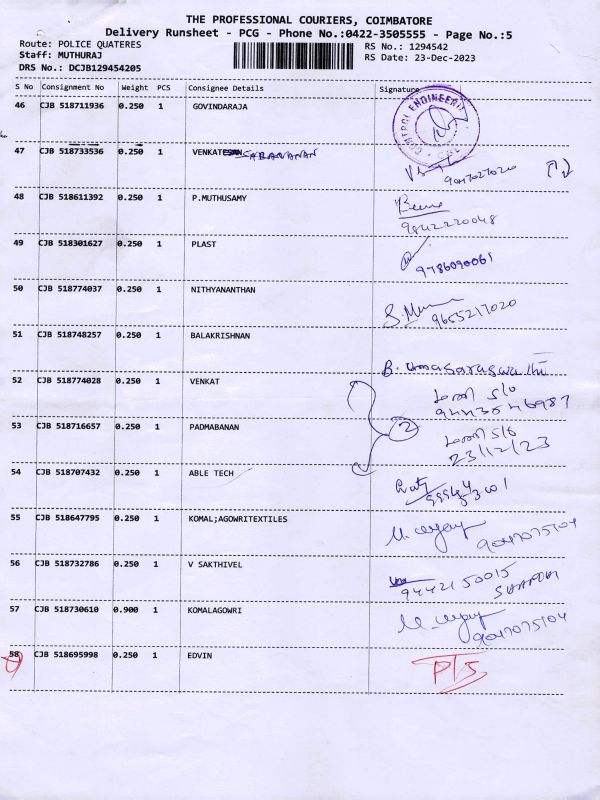 THE PROFESSIONAL COURIERS, COIMBATORE
Delivery Runsheet - PCG - Phone No.:0422-3505555 - Page No.:5
Route: POLICE QUATERES
RS No.: 1294542
Staff: MUTHURAJ
RS Date: 23-Dec-2023
DRS No.: DCJB129454205
S No Consignment No Weight PCS Consignee Details Signature
46 CJB 518711936 0.250 1 GOVINDARAJA
47 CJB 518733536 0.250 1 VENKATESAN SARAVANAN
9047027020
48 CJB 518611392 0.250 1 P.MUTHUSAMY
9842220048
49 CJB 518301627 0.250 1 PLAST
9786090061
50 CJB 518774037 0.250 1 NITHYANANTHAN
9655217020
51 CJB 518748257 0.250 1 BALAKRISHNAN
B. Umasaraswathi
52 CJB 518774028 0.250 1 VENKAT
53 CJB 518716657 0.250 1 PADMABANAN
2
23/12/23
54 CJB 518707432 0.250 1 ABLE TECH
55 CJB 518647795 0.250 1 KOMAL;AGOWRITEXTILES
9047075104
56 CJB 518732786 0.250 1 V SAKTHIVEL
9442150015
57 CJB 518730610 0.900 1 KOMALAGOWRI
9047075104
58 CJB 518695998 0.250 1 EDVIN